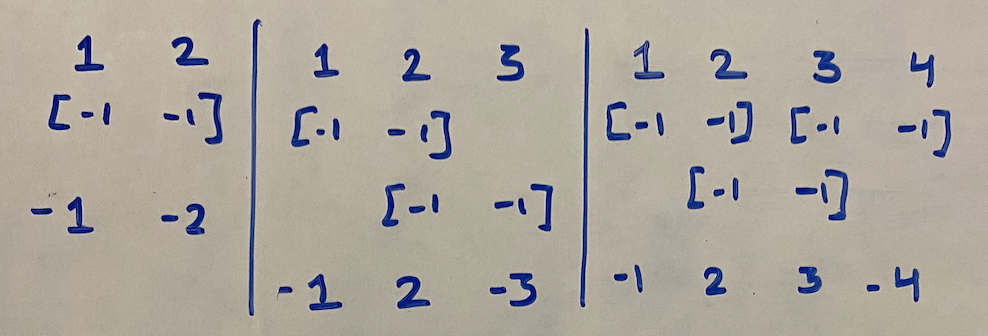 1 2
[-1 -1]
-1 -2
1 2 3
[-1 -1]
[-1 -1]
-1 2 -3
1 2 3 4
[-1 -1] [-1 -1]
[-1 -1]
-1 2 3 -4